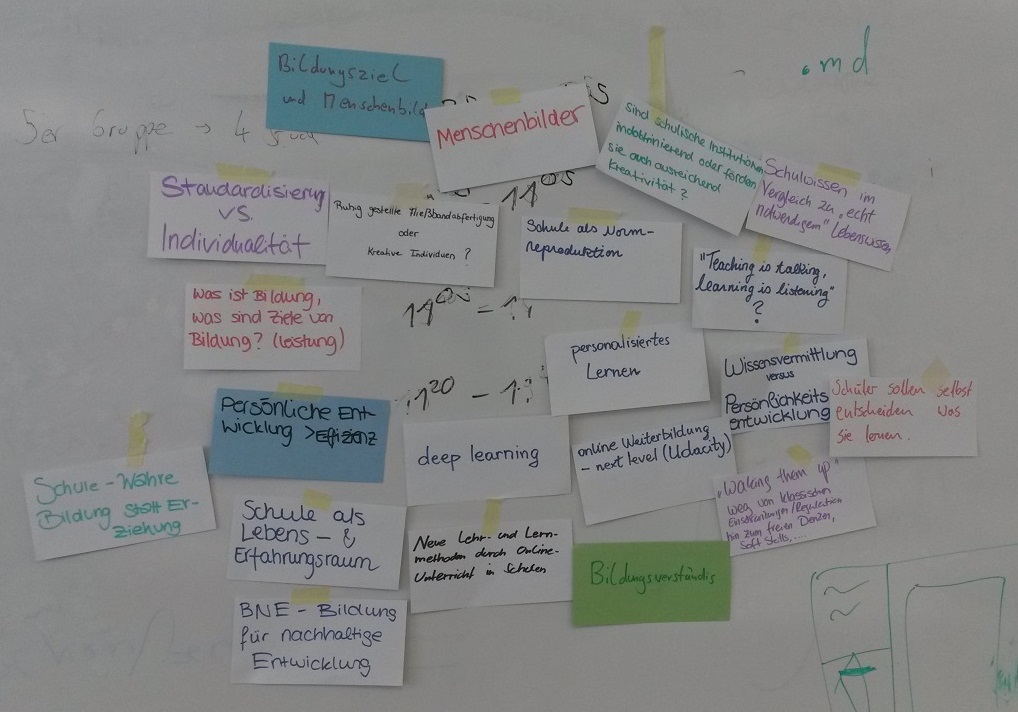 Bildungsziel
und Menschenbild
.md
5er Gruppe → 4
Menschenbilder
Sind schulische Institutionen
indoktrinierend oder fördern
sie auch ausreichend
Kreativität?
Schulwissen im
Vergleich zu „echt
notwendigem" Lebenswissen
Standardisierung
VS.
Individualität
Ruhig gestellte Fließbandabfertigung
oder
Kreative Individuen?
11 05
Schule als Norm-
reproduktion
"Teaching is talking,
learning is listening"
?
Was ist Bildung,
was sind Ziele von
Bildung? (Leistung)
11 05 - 1
personalisiertes
Lernen
Wissensvermittlung
versus
Persönlichkeits
entwicklung
Schüler sollen selbst
entscheiden was
sie lernen.
Persönliche Ent-
wicklung > Effizienz
11 20 - 1
deep learning
online Weiterbildung
- next level (Udacity)
"Waking them up"
weg von klassischen
hin zum freien Denken,
Soft Skills,....
Schule - Wahre
Bildung statt Er-
ziehung
Schule als
Lebens- &
Erfahrungsraum
Neue Lehr- und Lern-
methoden durch Online-
Unterricht in Schulen
Bildungsverständis
BNE - Bildung
für nachhaltige
Entwicklung